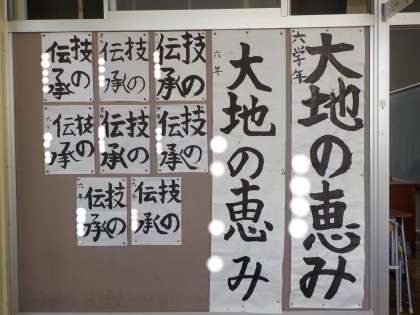 大地の恵み
六学年
大地の恵み
六年
技の
伝承
技の
伝承
技の
伝承
技の
伝承
技の
伝承
技の
伝承
技の
伝承
六年
技の
伝承
六年